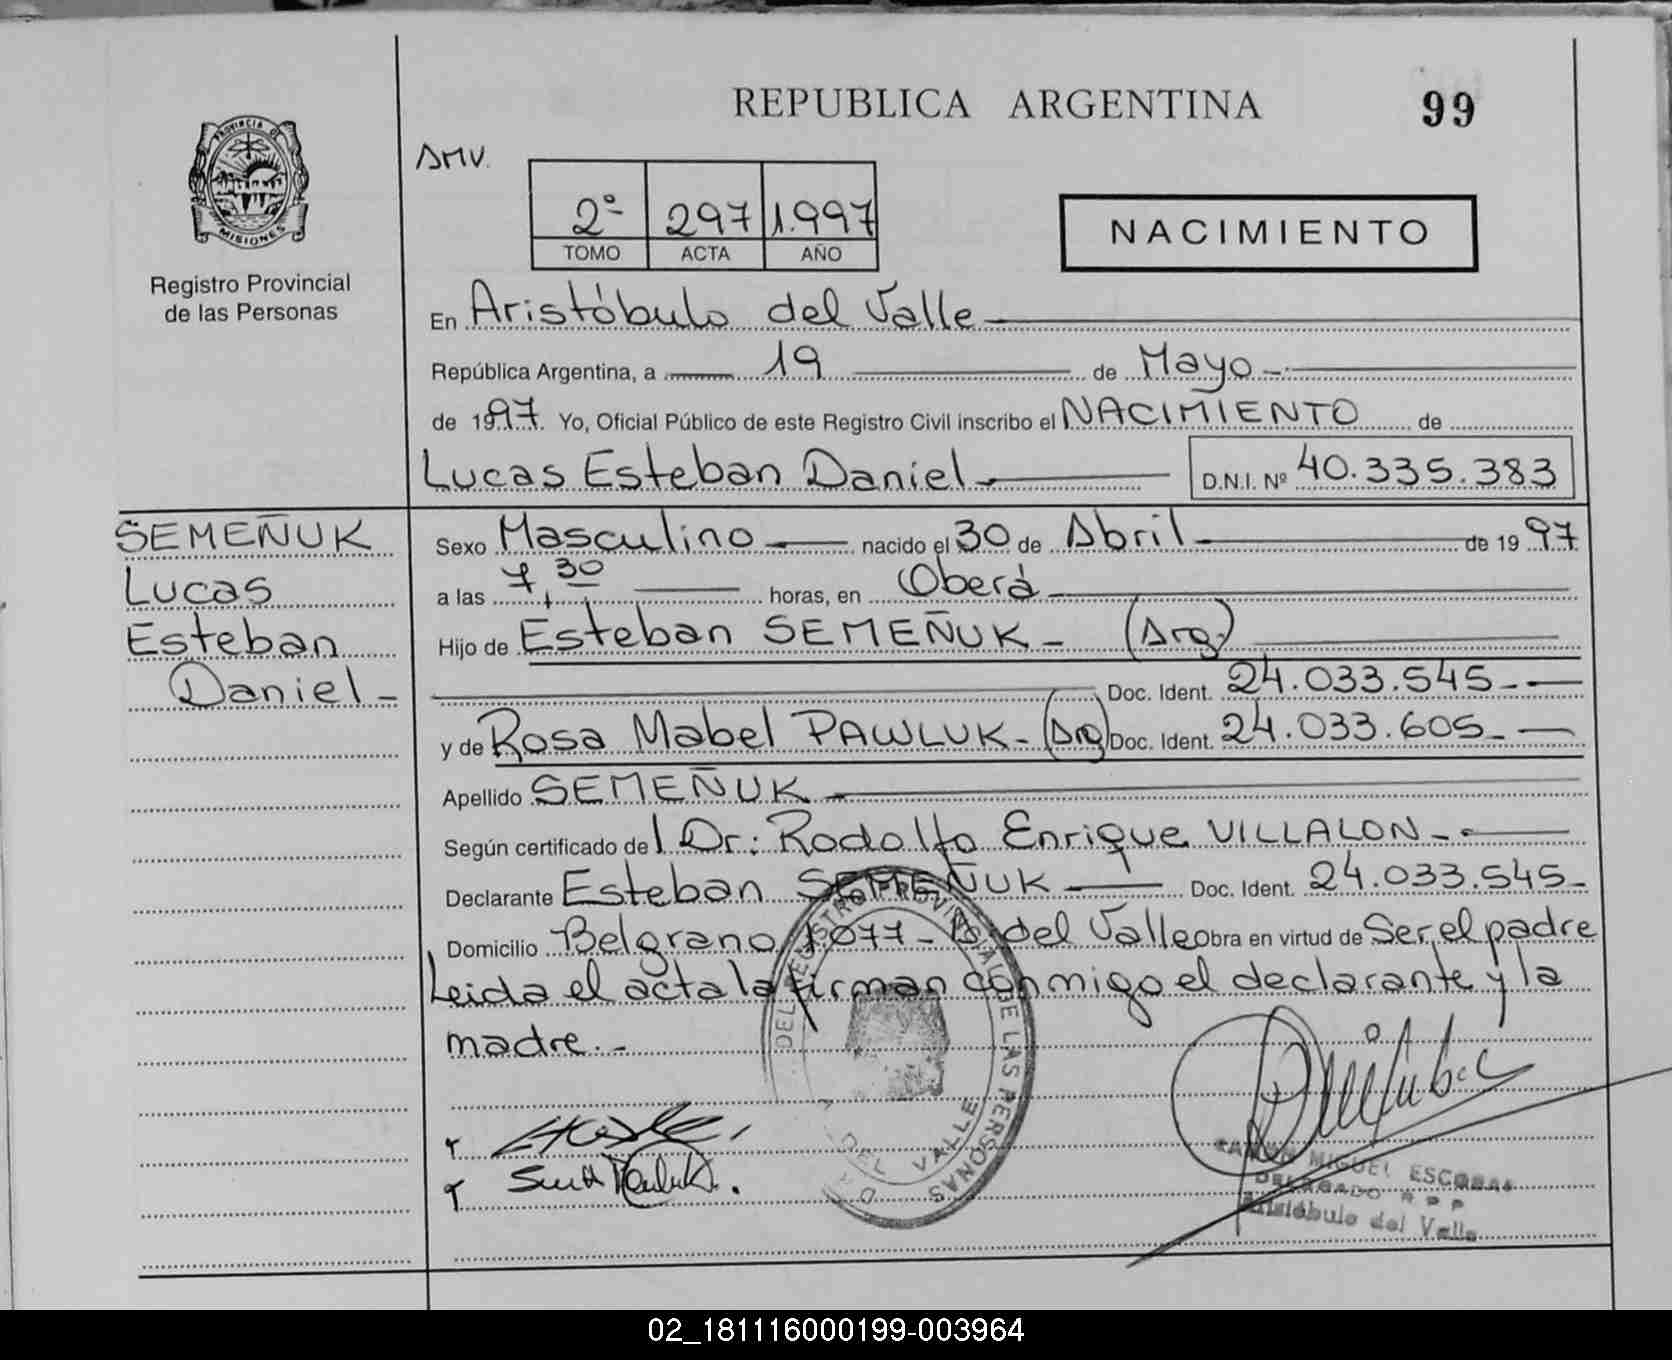 REPUBLICA ARGENTINA
99
PROVINCIA DE
MISIONES
Registro Provincial
de las Personas
AMV.
2º 297 1.997
TOMO ACTA AÑO
NACIMIENTO
En Aristóbulo del Valle
República Argentina, a 19 de Mayo
de 1997. Yo, Oficial Público de este Registro Civil inscribo el NACIMIENTO de
Lucas Esteban Daniel D.N.I. Nº 40.335.383
SEMEÑUK
Lucas
Esteban
Daniel
Sexo Masculino nacido el 30 de Abril de 1997
a las 7,30 horas, en Oberá
Hijo de Esteban SEMEÑUK - (Arg.)
Doc. Ident. 24.033.545
y de Rosa Mabel PAWLUK - (Arg) Doc. Ident. 24.033.605
Apellido SEMEÑUK
Según certificado del Dr: Rodolfo Enrique VILLALON
Declarante Esteban SEMEÑUK Doc. Ident. 24.033.545
Domicilio Belgrano 1077 - A. del Valle Obra en virtud de Ser el padre
Leida el acta la firman conmigo el declarante y la
madre.-
DEL REGISTRO PROVINCIAL DE LAS PERSONAS
DEL VALLE
RAMON MIGUEL ESCOBAR
DELEGADO R P P
Aristóbulo del Valle
02_181116000199-003964